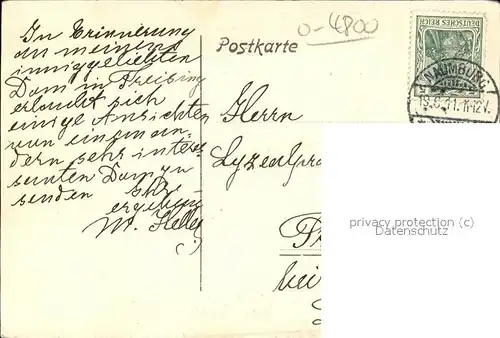 In Erinnerung
an meinen
inniggeliebten
Dom in Freising
erlaubt sich
einige Ansichten
von einem an-
dern sehr interes-
santen Dom zu
senden Ihr
ergebener
M. Heller
0-4800
Postkarte
DEUTSCHES REICH
NAUMBURG
11-12V.
Herrn
Lyzealpro
privacy protection (c)
Datenschutz
bei